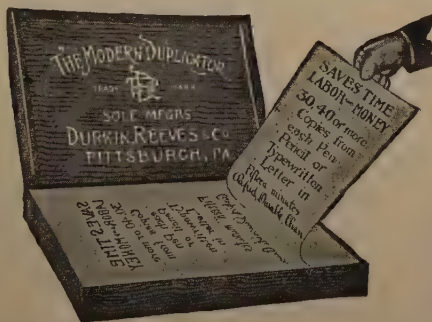 THE MODERN DUPLICATOR
TRADE MARK
SOLE MFGRS
DURKIN, REEVES & CO
PITTSBURGH, PA
SAVES TIME
LABOR-MONEY
30,40 or more
Copies from
each Pen
Pencil or
Typewritten
Letter in
fifteen minutes
SAVES TIME
LABOR-MONEY
30,40 or more
Copies from
each Pen
Pencil or
Typewritten
Letter in